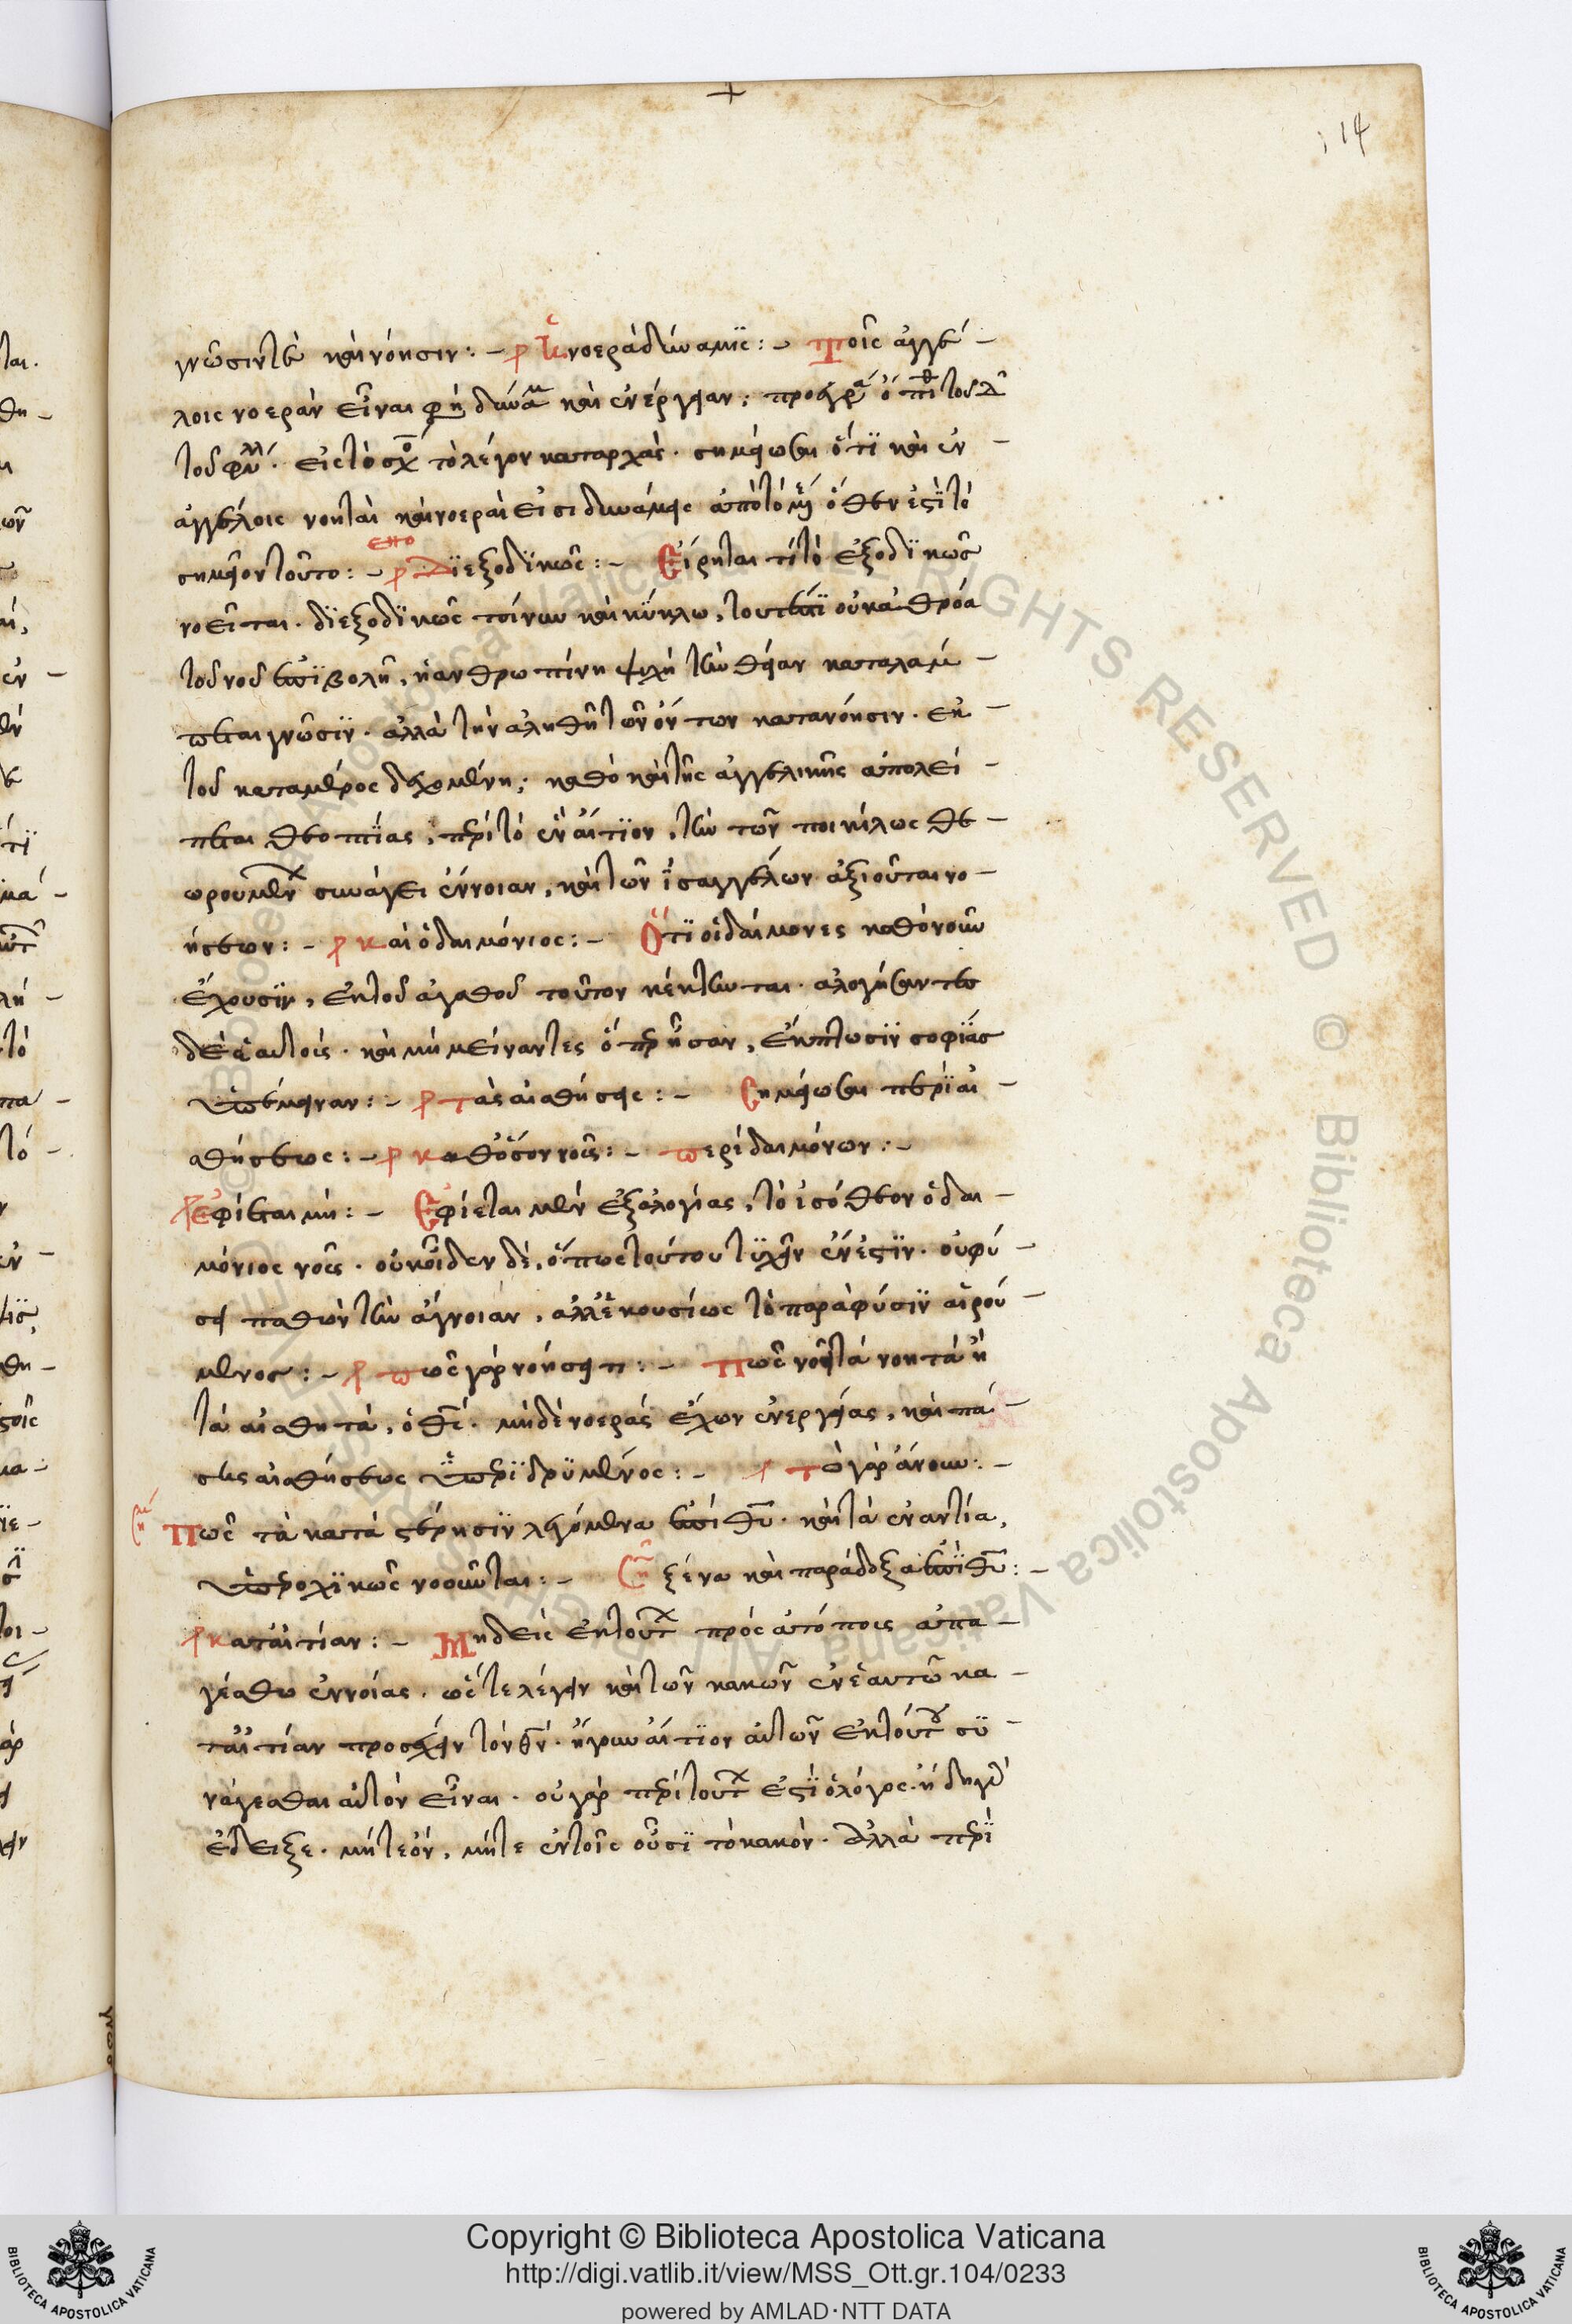 ; 14
γνῶσίν τε καὶ νόησιν :– ρκ νοερὰ δύναμις :– Τοῖς ἀγγέ–
λοις νοερὰν εἶναι φησὶ δύναμιν καὶ ἐνέργειαν·
τοῦ εἰς τὸ τὸ λέγον καταρχάς. σημείωσαι ὅτι καὶ ἐν –
ἀγγέλοις νοηταὶ καὶ νοεραὶ εἰσι δυνάμεις ὅθεν ἐστὶ τὸ
σημεῖον τοῦτο :– Διεξοδικῶς :– Εἴρηται τί τὸ ἐξοδικῶς
νοεῖται. διεξοδικῶς τοίνυν καὶ κύκλω, τουτέστι οὐκ ἀθρόα
τοῦ νοῦ ἐπιβολῆ, ἡ ἀνθρωπίνη ψυχὴ τὴν θείαν καταλάμ–
πεται γνῶσιν. ἀλλὰ τὴν ἀληθῆ τῶν ὄντων κατανόησιν. ἐκ –
τοῦ καταμέρος δεχομένη· καθὸ καὶ τῆς ἀγγελικῆς ἀπολεί–
πεται θεοπτίας, περὶ τὸ ἓν αἴτιον, τὴν τῶν ποικίλως θε–
ωρουμένων συνάγει ἔννοιαν, καὶ τῶν ἰσαγγέλων ἀξιοῦται νο–
ήσεων :– καὶ ὁ δαιμόνιος :– Ὅτι οἱ δαίμονες καθὸ νοῦν
ἔχουσιν, ἐκ τοῦ ἀγαθοῦ τοῦτον κέκτηνται. ἀλογήσαντες
δὲ ἑαυτοῖς. καὶ μὴ μείναντες ὅπερ ἦσαν, ἔκπτωσιν σοφίας
ὑπέμειναν :– τὰς αἰσθήσεις :– Σημείωσαι περὶ αἰ–
σθήσεως :– καθόσον νοῦς :– περὶ δαιμόνων :–
ἐφίεται μὴ :– Ἐφίεται μὲν ἐξ ἀλογίας, τὸ ἰσόθεον ὁ δαι–
μόνιος νοῦς. οὐκ οἶδεν δὲ, ὅπως τούτου τυχεῖν ἔνεστιν. οὐ φύ–
σει παθὼν τὴν ἄγνοιαν, ἀλλ' ἑκουσίως τὸ παρὰ φύσιν αἱρού–
μενος :– πῶς γὰρ νοήσει τι :– Πῶς νοεῖ τὰ νοητὰ ἢ
τὰ αἰσθητὰ, ὁ θεός. μηδὲ νοερὰς ἔχων ἐνεργείας, καὶ πά–
σης αἰσθήσεως ὑπεριδρυμένος :– τὸ γὰρ ἄνουν :–
Πῶς τὰ κατὰ στέρησιν λεγόμενα ἐπὶ θεοῦ. καὶ τὰ ἐναντία,
ὑπεροχικῶς νοοῦνται :– ξένα καὶ παράδοξα ἐπὶ θεοῦ :–
κατ' αἰτίαν :– Μηδεὶς ἐκ τούτων πρὸς ἀτόπους ἀπα–
γέσθω ἐννοίας. ὥστε λέγειν καὶ τῶν κακῶν ἐν ἑαυτῶ κα–
τ' αἰτίαν προσέχειν τὸν θεόν. ἤγουν αἴτιον αὐτῶν ἐκ τούτου συ–
νάγεσθαι αὐτὸν εἶναι. οὐ γὰρ περὶ τούτων ἐστὶ ὁ λόγος.
ἔδειξε. μήτε ὂν, μήτε ἐν τοῖς οὖσι τὸ κακόν. ἀλλὰ περὶ
Copyright © Biblioteca Apostolica Vaticana
http://digi.vatlib.it/view/MSS_Ott.gr.104/0233
powered by AMLAD·NTT DATA